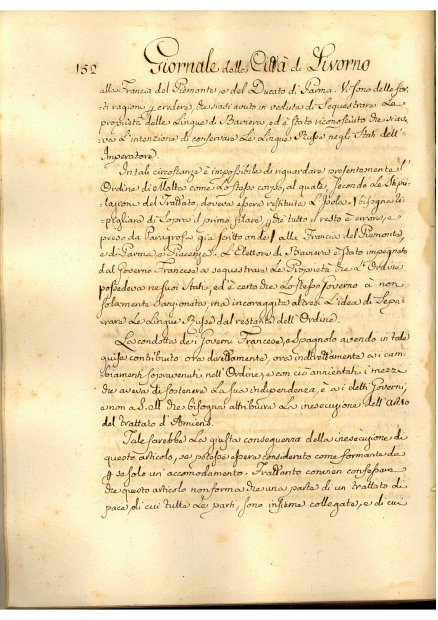 152 Giornale della Città di Livorno
alla Francia del Piemonte, e del Ducato di Parma. Vi sono delle for-
ti ragioni di credere, che siasi avuto in veduta di sequestrare le
proprietà della Lingua di Baviera, ed è stato riconosciuto che si a
va l'intenzione di conservare le Lingue Russe negli Stati dell'
Imperatore.
In tali circostanze è impossibile di riguardare presentemente l'
Ordine di Malta come lo stesso corpo, al quale, secondo le Stipu-
lazioni del Trattato, doveva essere restituita l'Isola. bisogna ri-
pigliare di sopra il primo che tutto il resto è errore, e
preso da Paragrafo già scritto onde alla Francia del Piemonte,
e di Parma, e Piacenza. L'Elettore di Baviera è stato impegnato
dal Governo Francese a sequestrare le Proprietà che l'Ordine
possedeva ne suoi Stati, ed è certo che lo stesso Governo à non
solamente sanzionata, ma incoraggita altresì l'idea di sepa-
rare le Lingue Russe dal restante dell'Ordine.
La condotta de i Governi Francese, e Spagnolo avendo in tale
guisa contribuito ora direttamente, ora indirettamente a i cam-
biamenti sopravenuti nell'Ordine, e con ciò annientati i mezzi
che aveva di sostenere la sua indipendenza, è a i detti Governi,
e non a S. M. che bisogna attribuire la inesecuzione dell'Arto
del trattato d'Amiens.
Tale sarebbe la giusta conseguenza della inesecuzione di
questo articolo, se potesse essere considerato come formante da
se solo un'accomodamento. Frattanto convien confessare
che questo articolo non forma che una parte di un trattato di
pace, di cui tutte le parti, sono insieme collegate, e di cui